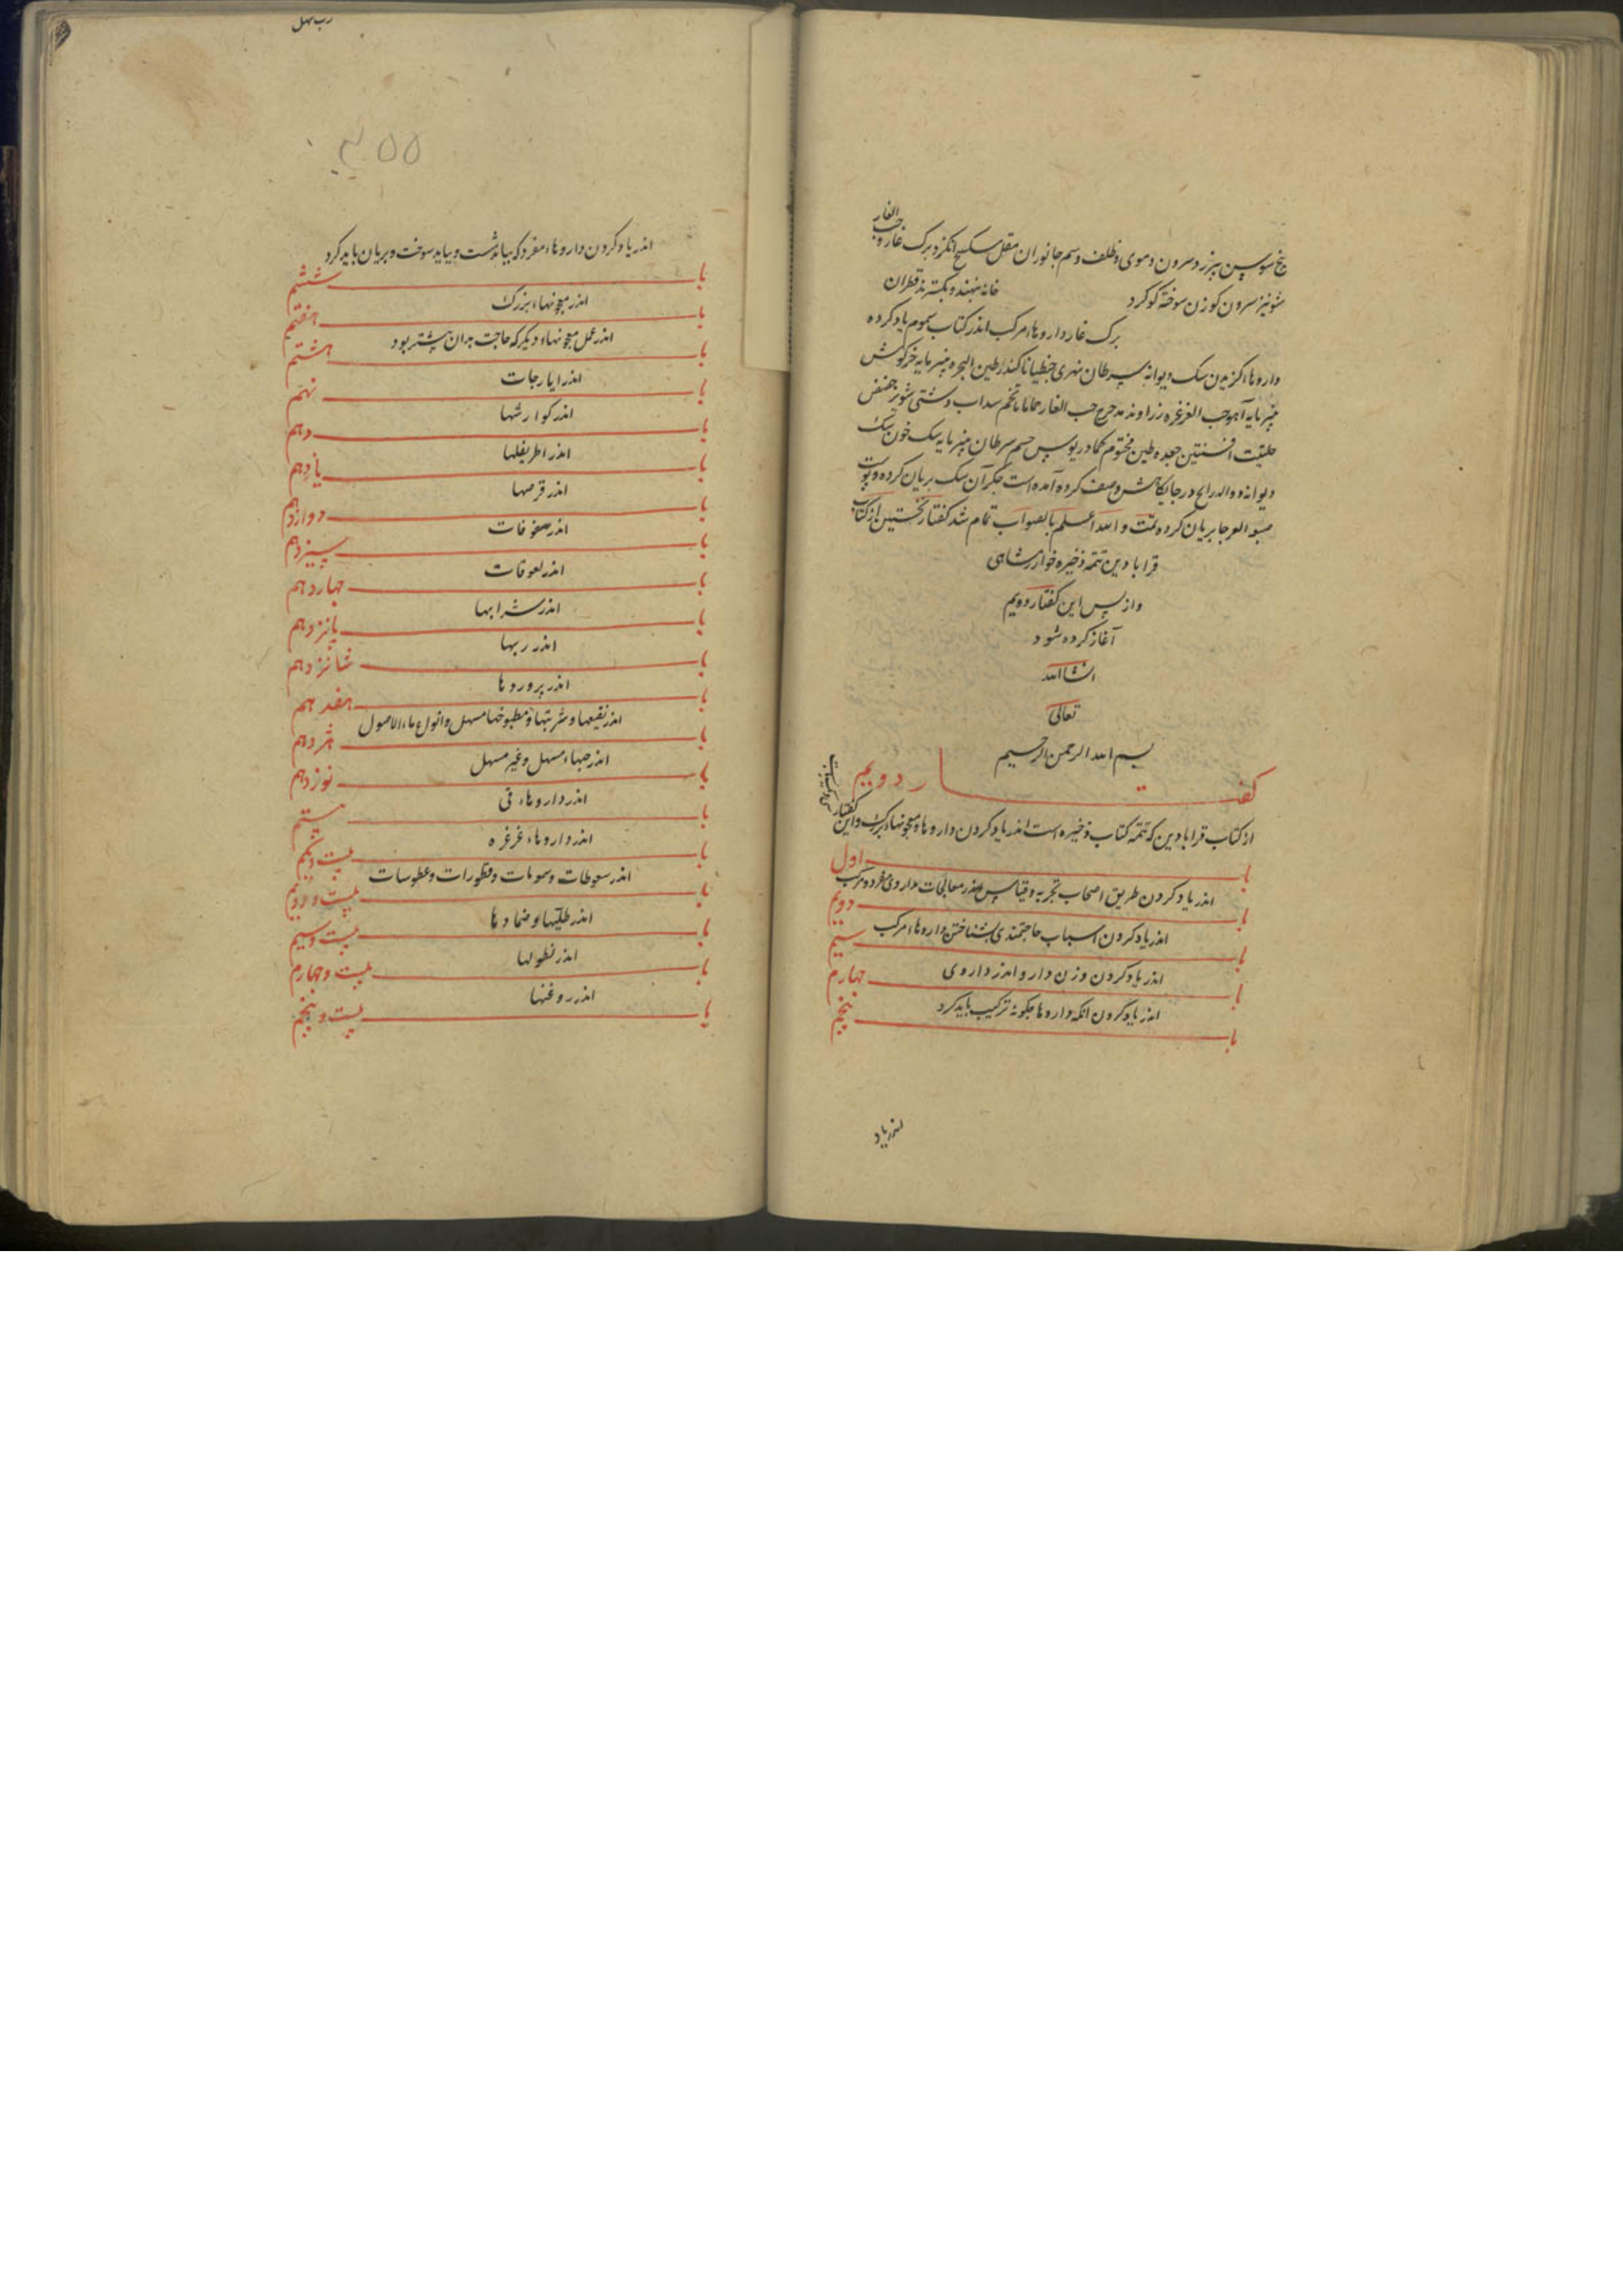 بیخ سوسن بپزر دسرون و موی و ظلف و سم جانوران مقل سکبینج انکژد برک غار و حب الغار
شونیز سرون کوزن سوخته کوکرد خانه بنهند و بکسترند قطران
برک غار داروهاء مرکب اندر کتاب سموم یاد کرده
داروهاء کزیدن سک دیوانه سرطان نهری جنطیانا کندر طین البحره پنیرمایه خرکوش
پنیرمایه آهو حب الغار زراوند مدحرج حب الغار حماما تخم سداب دشتی شونیز حضض
حلتیت افسنتین جعده طین مختوم کمادریوس جسم سرطان پنیرمایه سک خون سک
دیوانه و الدرایح در جایکاهش وصف کرده آمده است جکر آن سک بریان کرده و پوست
بریان کرده تمّت و الله اعلم بالصواب تمام شد کفتار نخستین از کتاب
قرابادین تتمه ذخیره خوارزمشاهی
و از پس این کفتار دویم
آغاز کرده شود
انشاالله
تعالی
بسم الله الرحمن الرحیم
کفتار دویم
از کتاب قرابادین که تتمه کتاب ذخیره است اندر یاد کردن داروها و معجونهاء بزرک و این کفتار
باب اول
اندر یاد کردن طریق اصحاب تجربه و قیاس اندر معالجات بداروی مفرد و مرکب
باب دویم
اندر یاد کردن اسباب حاجتمندی بشناختن داروهاء مرکب
باب سیم
اندر یاد کردن وزن دارو اندر داروی
باب چهارم
اندر یاد کردن انکه داروها چکونه ترکیب باید کرد
باب پنجم
اندر یاد
رب سهل
۳۵۵
اندر یاد کردن داروهاء مفرد که بباید شست و بباید سوخت و بریان باید کرد
باب ششم
اندر معجونهاء بزرک
باب هفتم
اندر عمل معجونهاء دیکر که حاجت بدان بیشتر بود
باب هشتم
اندر ایارجات
باب نهم
اندر کوارشها
باب دهم
اندر اطریفلها
باب یازدهم
اندر قرصها
باب دوازدهم
اندر سفوفات
باب سیزدهم
اندر لعوقات
باب چهاردهم
اندر شرابها
باب پانزدهم
اندر ربها
باب شانزدهم
اندر پروردها
باب هفدهم
اندر نقیعها و شربتها و مطبوخها مسهل و انواع ماء الاصول
باب هژدهم
اندر حبهاء مسهل و غیر مسهل
باب نوزدهم
اندر داروهاء قی
باب بیستم
اندر داروهاء غرغره
باب بیست و یکم
اندر سعوطات و شمومات و قطورات و عطوسات
باب بیست و دویم
اندر طلیها و ضمادها
باب بیست و سیم
اندر نطولها
باب بیست و چهارم
اندر روغنها
باب بیست و پنجم